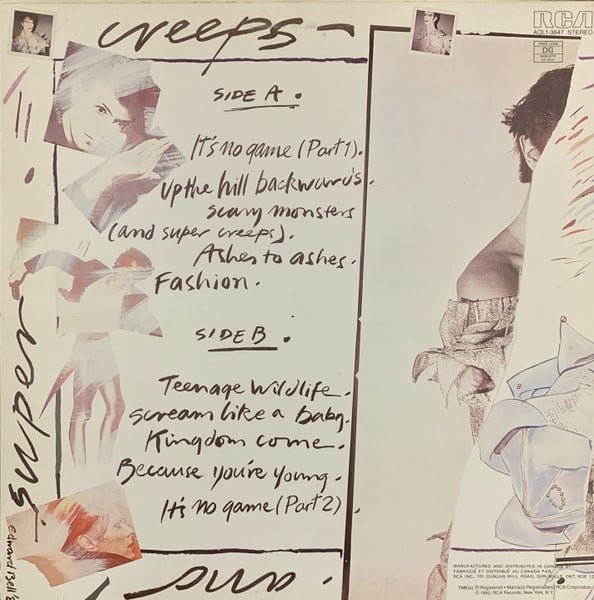 creeps
RCA
AQL1-3647 STEREO
DG
SIDE A.
It's no game (Part 1).
Up the hill backwards.
scary monsters
(and super creeps).
Ashes to ashes.
Fashion.
SIDE B.
Teenage Wildlife.
scream like a baby.
Kingdom come.
Because you're young.
It's no game (Part 2).
super
and
Edward Bell
MANUFACTURED AND DISTRIBUTED IN CANADA BY
FABRIQUÉ ET DISTRIBUÉ AU CANADA PAR
RCA INC., 101 DUNCAN MILL ROAD, DON MILLS, ONT.
TMK(s) ® Registered • Marca(s) Registrada(s) RCA Corporation
© 1980, RCA Records, New York, N.Y.